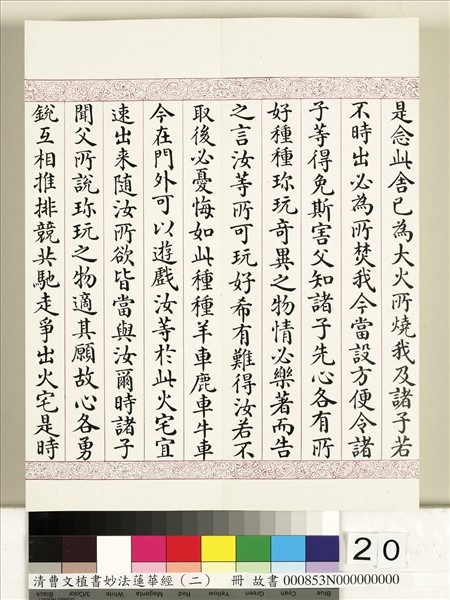 是念此舍已為大火所燒我及諸子若
不時出必為所焚我今當設方便令諸
子等得免斯害父知諸子先心各有所
好種種珍玩奇異之物情必樂著而告
之言汝等所可玩好希有難得汝若不
取後必憂悔如此種種羊車鹿車牛車
今在門外可以遊戲汝等於此火宅宜
速出来随汝所欲皆當與汝爾時諸子
聞父所說珎玩之物適其願故心各勇
銳互相推排競共馳走爭出火宅是時
20
清曹文植書妙法蓮華經（二）　冊 故書 000853N000000000
Black
3/Color
White
Magenta
Red
Yellow
Green
Cyan
Blue